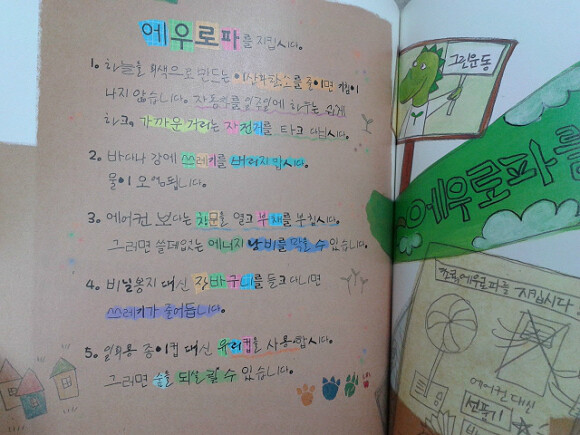 에우로파를 지킵시다.
1. 하늘을 회색으로 만드는 이산화탄소를 줄이면 기침이
나지 않습니다. 자동차를 일주일에 하루는 쉽게
하고, 가까운 거리는 자전거를 타고 다닙시다.
2. 바다나 강에 쓰레기를 버리지 맙시다.
물이 오염됩니다.
3. 에어컨 보다는 창문을 열고 부채를 부칩시다.
그러면 쓸데없는 에너지 낭비를 막을 수 있습니다.
4. 비닐봉지 대신 장바구니를 들고 다니면
쓰레기가 줄어듭니다.
5. 일회용 종이컵 대신 유리컵을 사용합시다.
그러면 숲을 되살릴 수 있습니다.
그린운동
에우로파를
초록에우로파를 지킵시다
에어컨 대신
선풍기